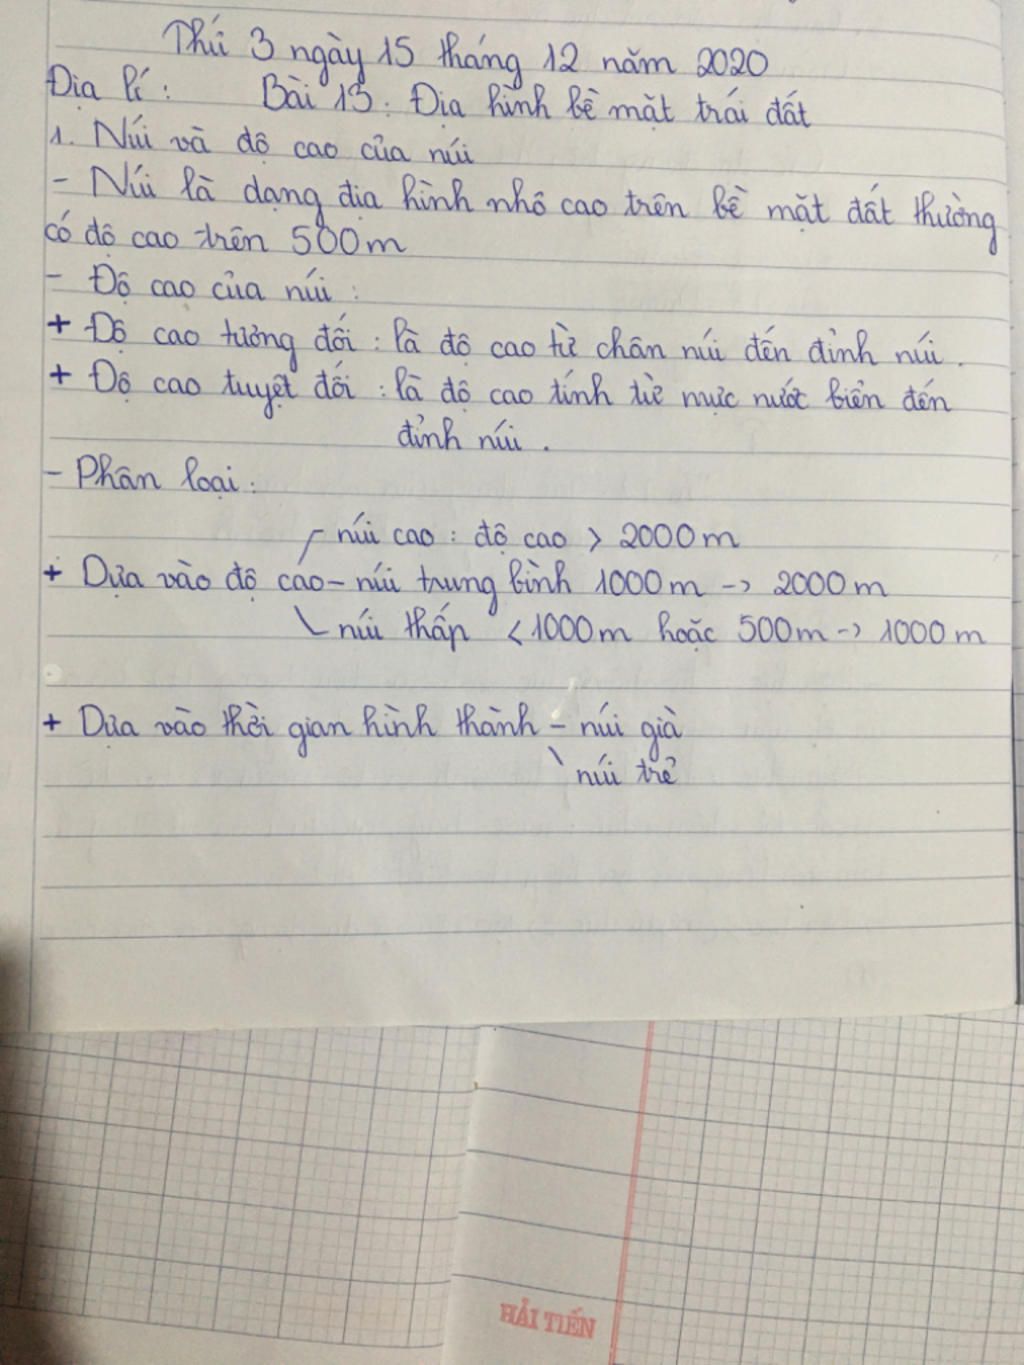 Thứ 3 ngày 15 tháng 12 năm 2020
Địa lí: Bài 13. Địa hình bề mặt trái đất
1. Núi và độ cao của núi
- Núi là dạng địa hình nhô cao trên bề mặt đất thường
có độ cao trên 500m
- Độ cao của núi:
+ Độ cao tương đối: là độ cao từ chân núi đến đỉnh núi.
+ Độ cao tuyệt đối: là độ cao tính từ mực nước biển đến
đỉnh núi.
- Phân loại:
núi cao: độ cao > 2000m
+ Dựa vào độ cao - núi trung bình 1000m -> 2000m
núi thấp < 1000m hoặc 500m -> 1000m
+ Dựa vào thời gian hình thành - núi già
núi trẻ
HẢI TIẾN